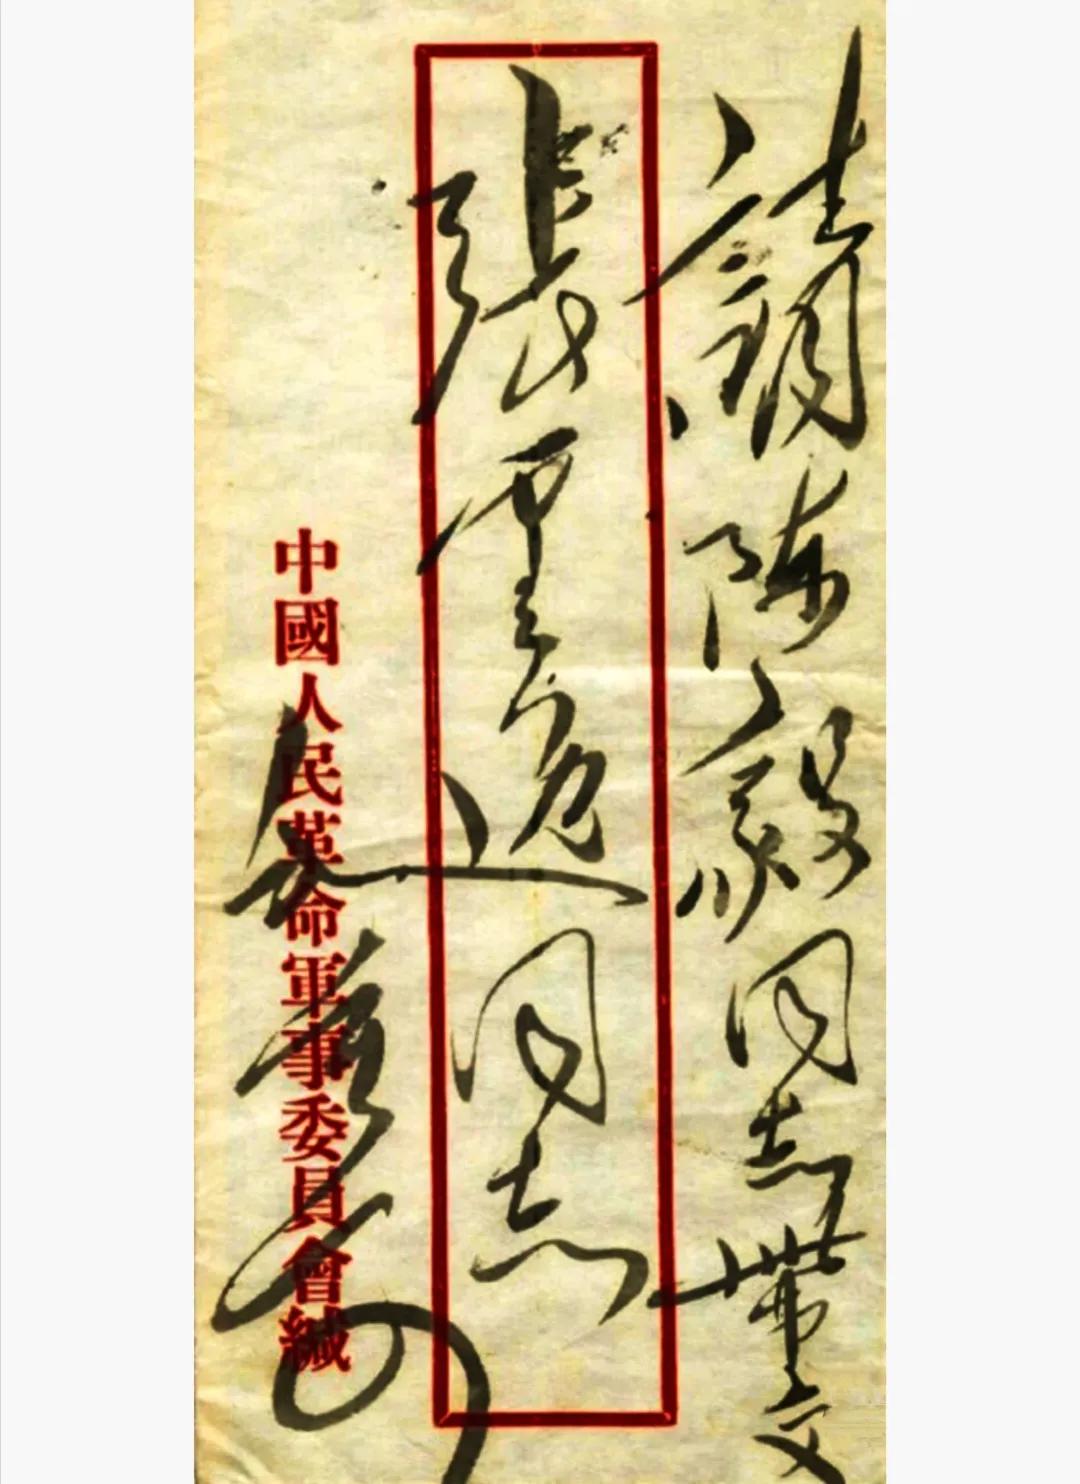 請陳毅同志帶交
張雲逸同志
中國人民革命軍事委員會緘
毛澤東